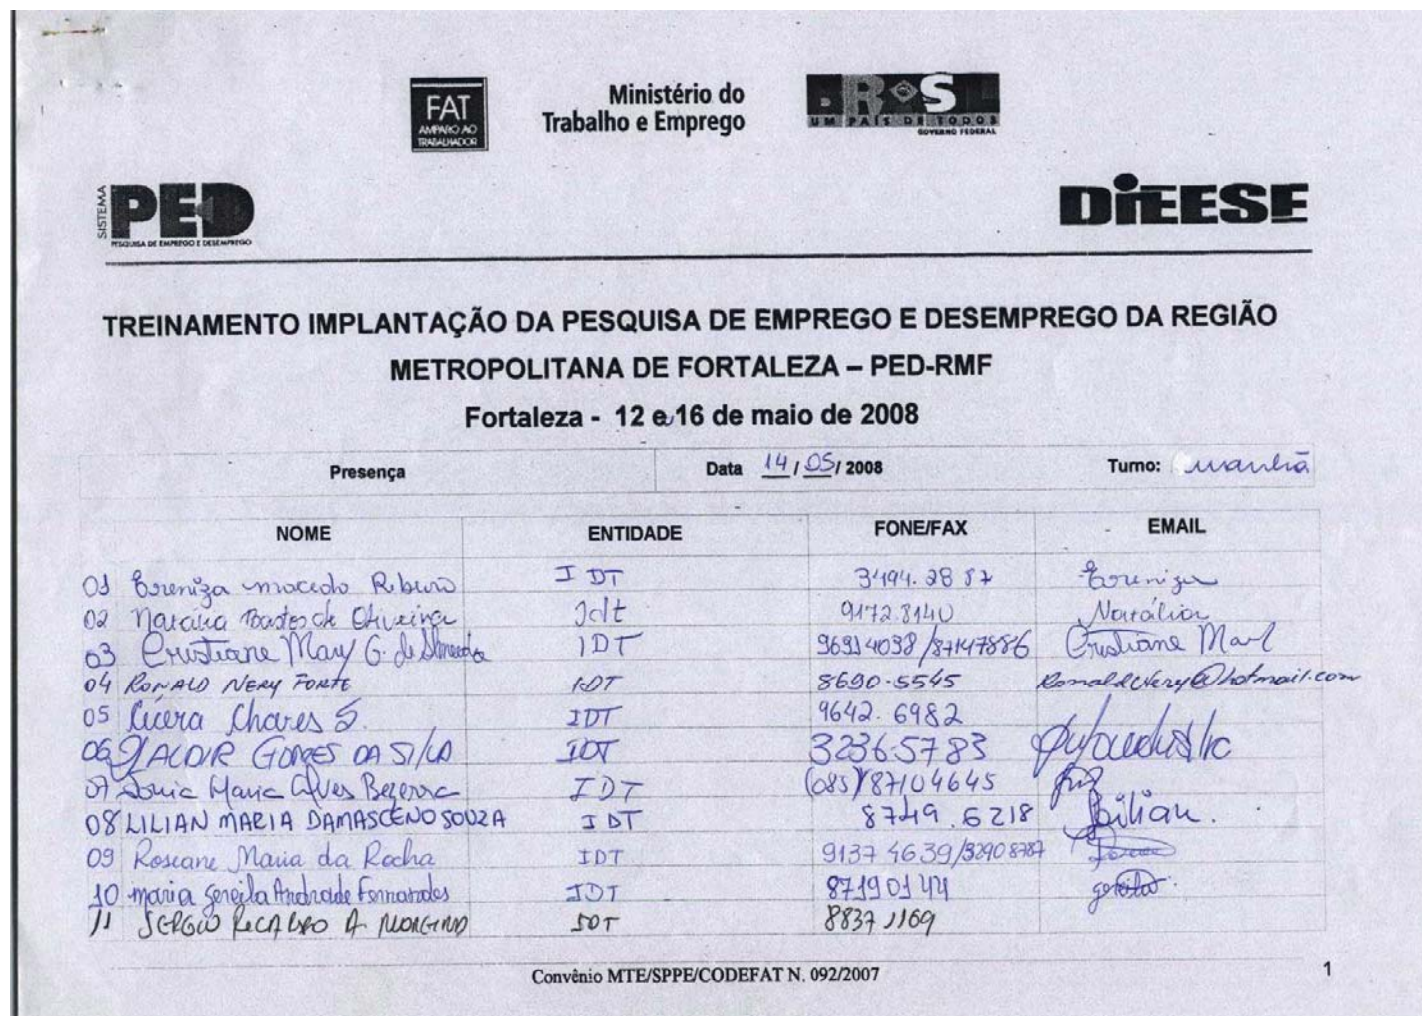 FAT
AMPARO AO
TRABALHADOR
Ministério do
Trabalho e Emprego
BRASIL
UM PAÍS DE TODOS
GOVERNO FEDERAL
SISTEMA
PED
PESQUISA DE EMPREGO E DESEMPREGO
DIEESE
TREINAMENTO IMPLANTAÇÃO DA PESQUISA DE EMPREGO E DESEMPREGO DA REGIÃO
METROPOLITANA DE FORTALEZA – PED-RMF
Fortaleza - 12 e 16 de maio de 2008
Presença Data 14/05/2008 Turno: manhã
NOME ENTIDADE FONE/FAX EMAIL
01 macedo Ribeiro IDT 3494.2887
02 Natália Bastos de Oliveira Idt 9172.8140 Natália
03 Cristiane Mary G. de Almeida IDT 96914098/87147886 Cristiane Mary
04 RONALD NERY FORTE IDT 8690-5545 Ronaldnery@hotmail.com
05 Cícera Chaves S. IDT 9642.6982
06 VALDIR GOMES DA SILVA IDT 32365783
07 Sonia Maria Alves Bezerra IDT (085)87104645
08 LILIAN MARIA DAMASCENO SOUZA IDT 8749.6218 Lilian.
09 Roseane Maria da Rocha IDT 9137 4639/32908787
10 maria Andrade Fernandes IDT 87190144
11 SERGIO RICARDO A. IDT 8837 1169
Convênio MTE/SPPE/CODEFAT N. 092/2007
1